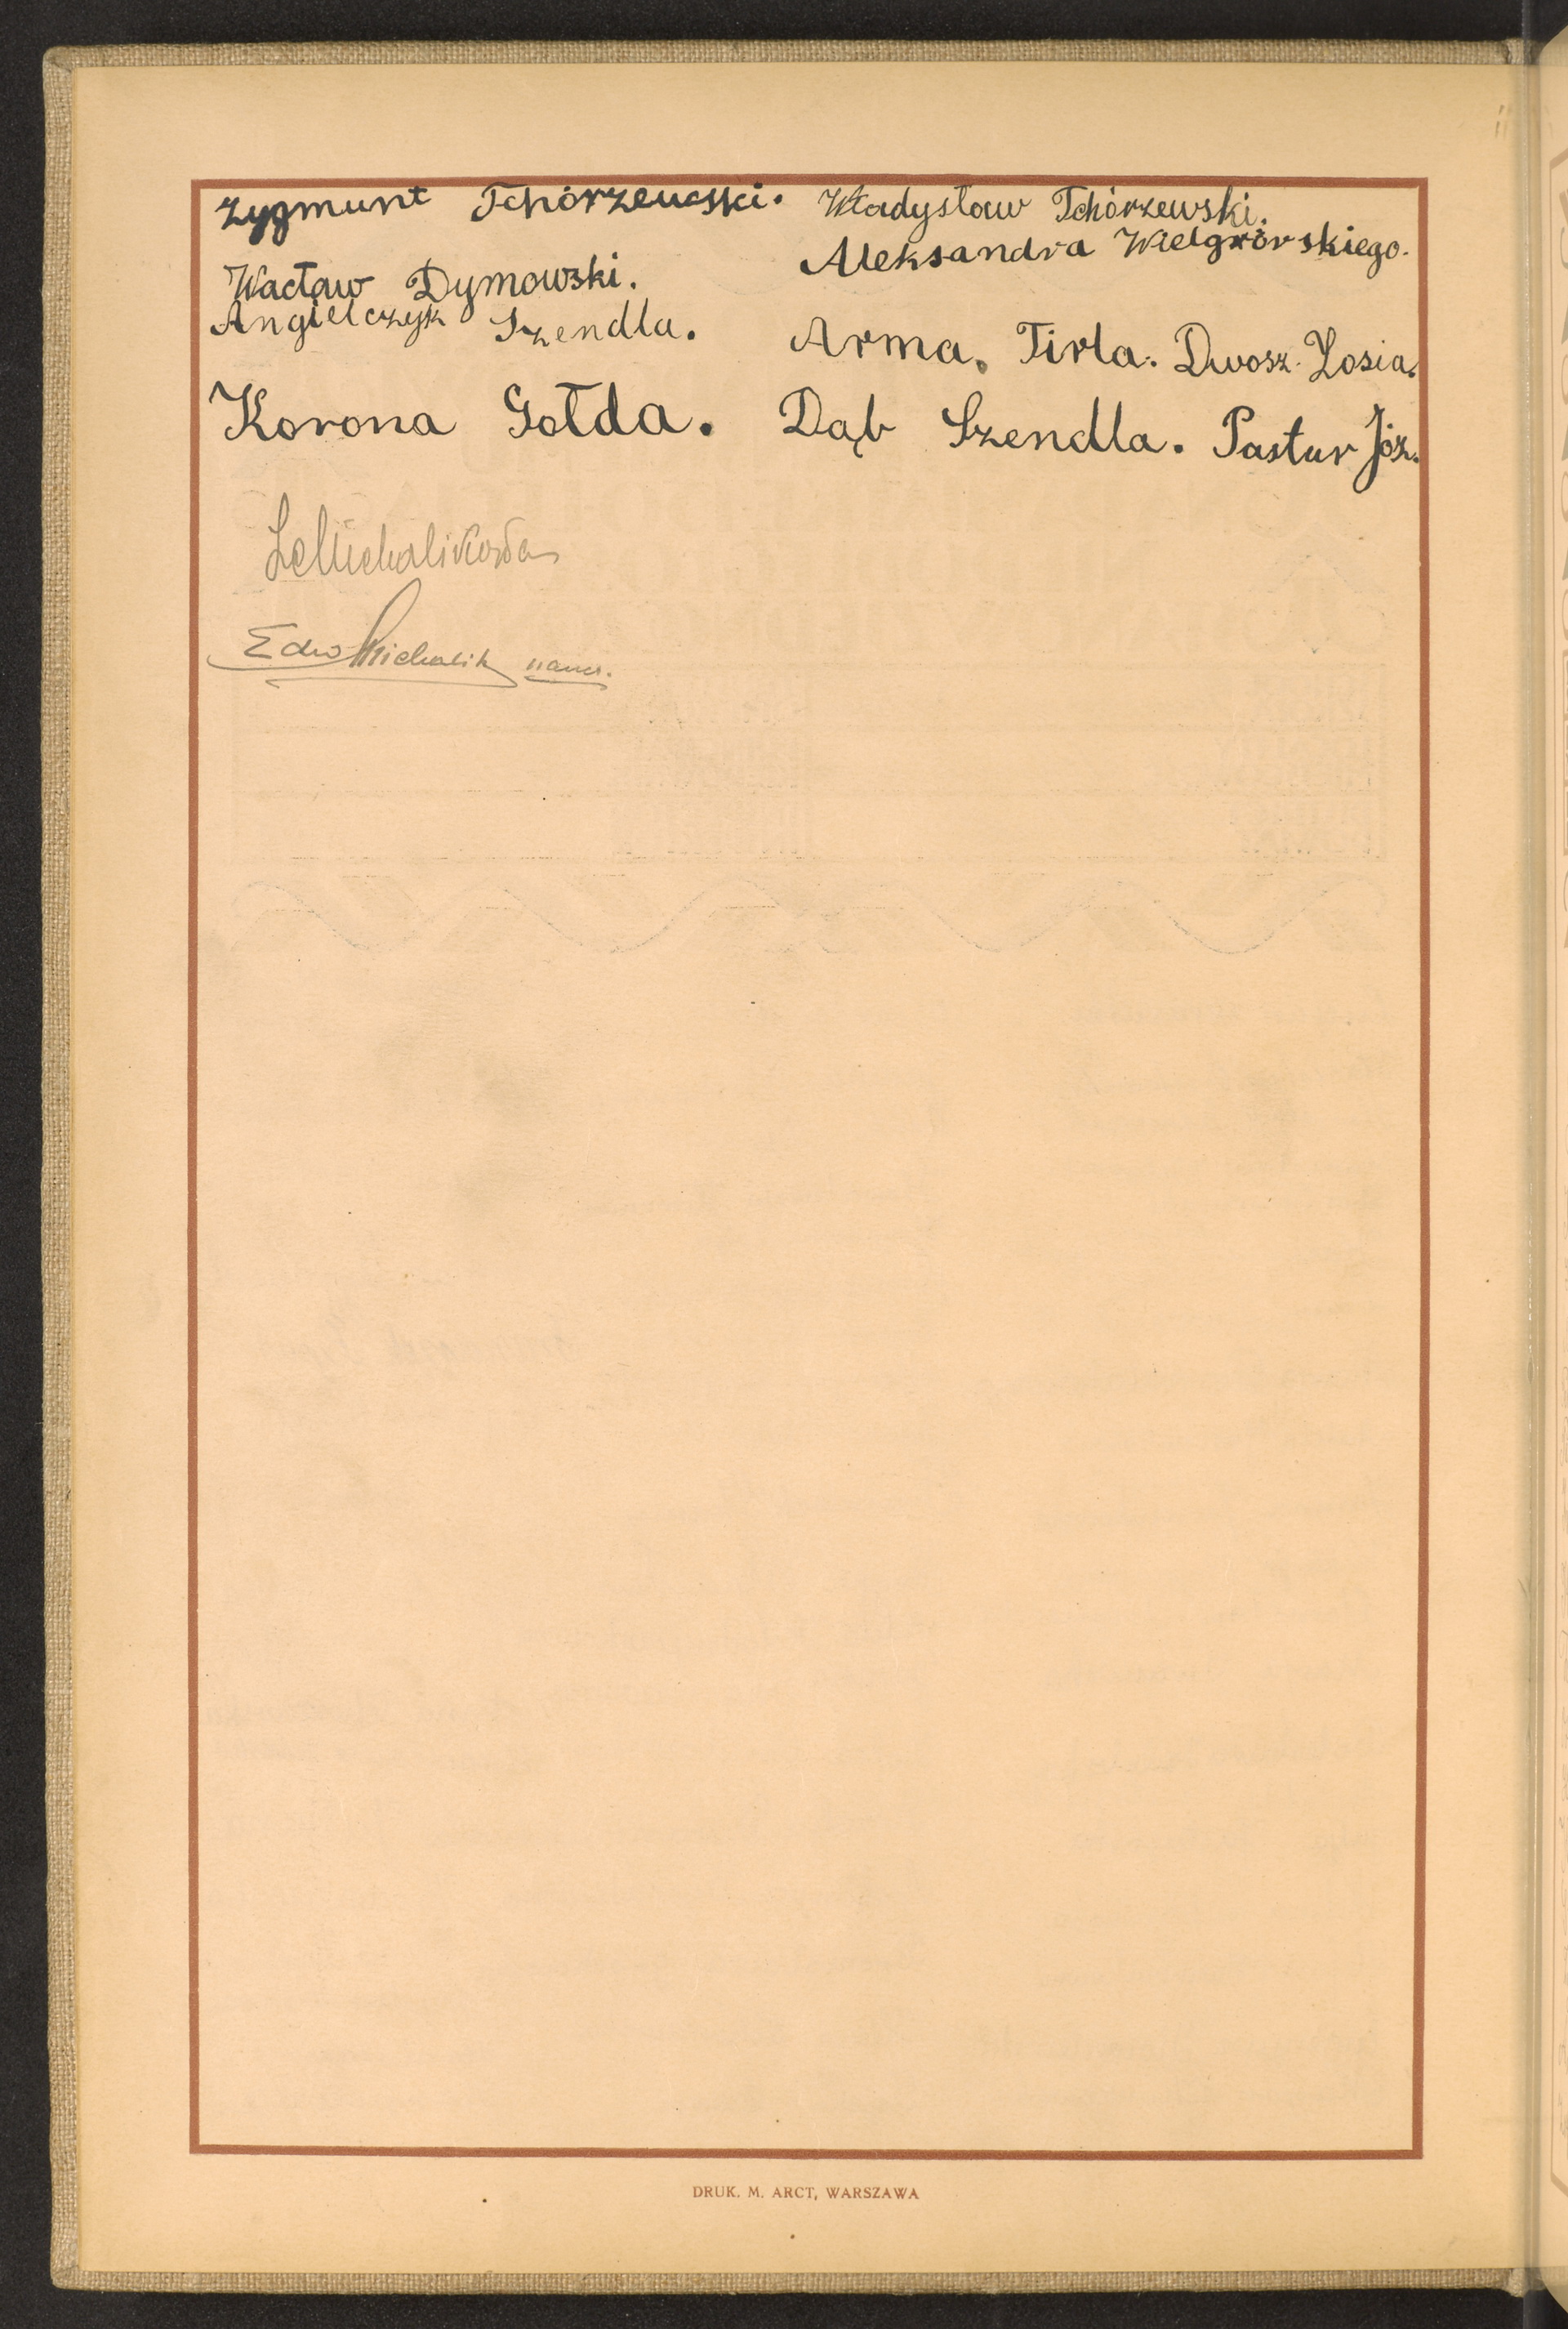 Zygmunt Tchórzewski. Władysław Tchórzewski.
Wacław Dymowski. Aleksandra Wielgórskiego.
Angielczyk Szendla. Arma. Tirla. Dwosz. Zosia.
Korona Gołda. Dąb Szendla. Pastur Józ.
Edw Michalik naucz.
DRUK. M. ARCT, WARSZAWA